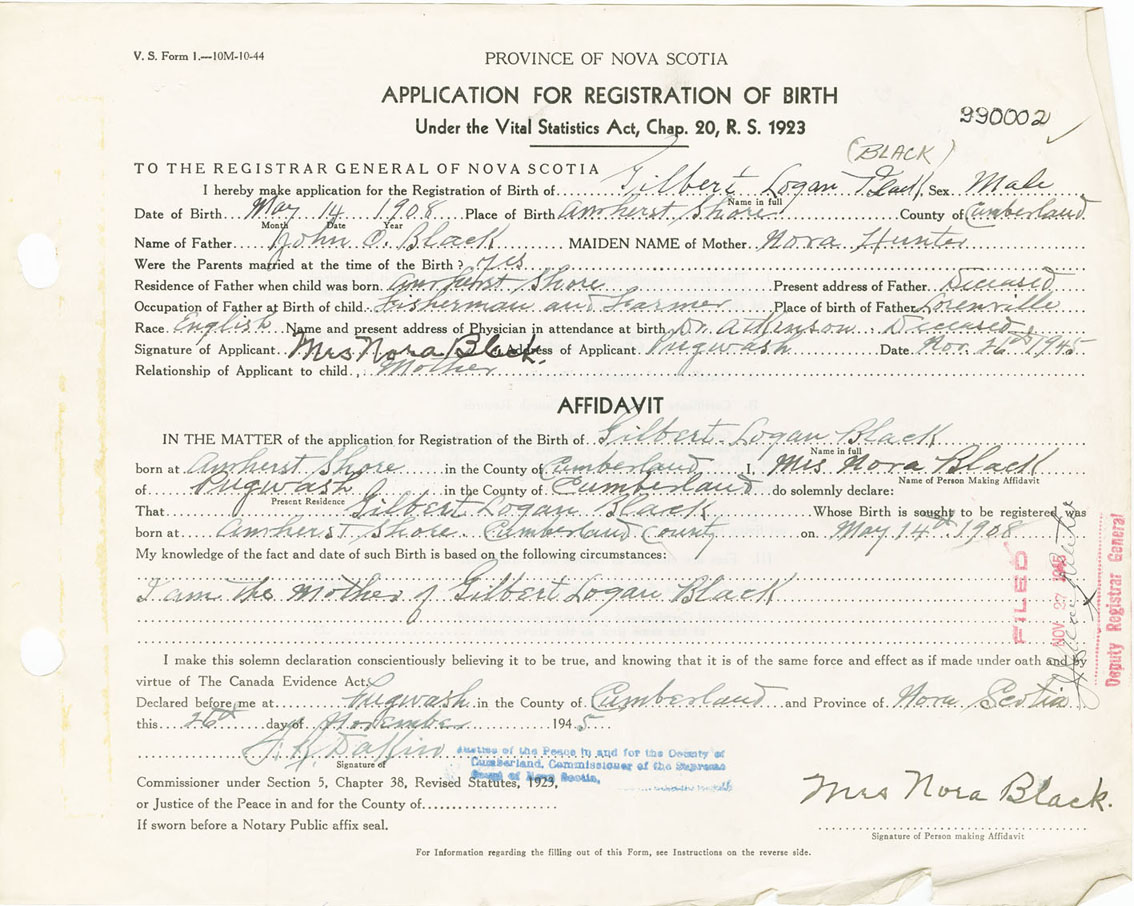 V. S. Form 1.—10M-10-44
PROVINCE OF NOVA SCOTIA
APPLICATION FOR REGISTRATION OF BIRTH
990002
Under the Vital Statistics Act, Chap. 20, R. S. 1923
(BLACK)
TO THE REGISTRAR GENERAL OF NOVA SCOTIA
I hereby make application for the Registration of Birth of Gilbert Logan Black Sex Male
Name in full
Date of Birth May 14 1908 Place of Birth Amherst Shore County of Cumberland
Month Date Year
Name of Father John O. Black MAIDEN NAME of Mother Nora Hunter
Were the Parents married at the time of the Birth? yes
Residence of Father when child was born Amherst Shore Present address of Father Deceased
Occupation of Father at Birth of child Fisherman and Farmer Place of birth of Father Lorenville
Race English Name and present address of Physician in attendance at birth Dr. Atkinson Deceased
Signature of Applicant Mrs Nora Black. Address of Applicant Pugwash Date Nov. 26th 1945
Relationship of Applicant to child Mother
AFFIDAVIT
IN THE MATTER of the application for Registration of the Birth of Gilbert Logan Black
Name in full
born at Amherst Shore in the County of Cumberland I, Mrs Nora Black
Name of Person Making Affidavit
of Pugwash in the County of Cumberland do solemnly declare:
Present Residence
That Gilbert Logan Black Whose Birth is sought to be registered was
born at Amherst Shore Cumberland County on May 14th 1908
My knowledge of the fact and date of such Birth is based on the following circumstances:
I am the Mother of Gilbert Logan Black
FILED
NOV 27 1945
Deputy Registrar General
I make this solemn declaration conscientiously believing it to be true, and knowing that it is of the same force and effect as if made under oath and by
virtue of The Canada Evidence Act.
Declared before me at Pugwash in the County of Cumberland and Province of Nova Scotia
this 26th day of November 1945
Justice of the Peace in and for the County of
Cumberland. Commissioner of the Supreme
Court of Nova Scotia.
Signature of
Commissioner under Section 5, Chapter 38, Revised Statutes, 1923,
or Justice of the Peace in and for the County of
Mrs Nora Black.
If sworn before a Notary Public affix seal.
Signature of Person making Affidavit
For Information regarding the filling out of this Form, see Instructions on the reverse side.